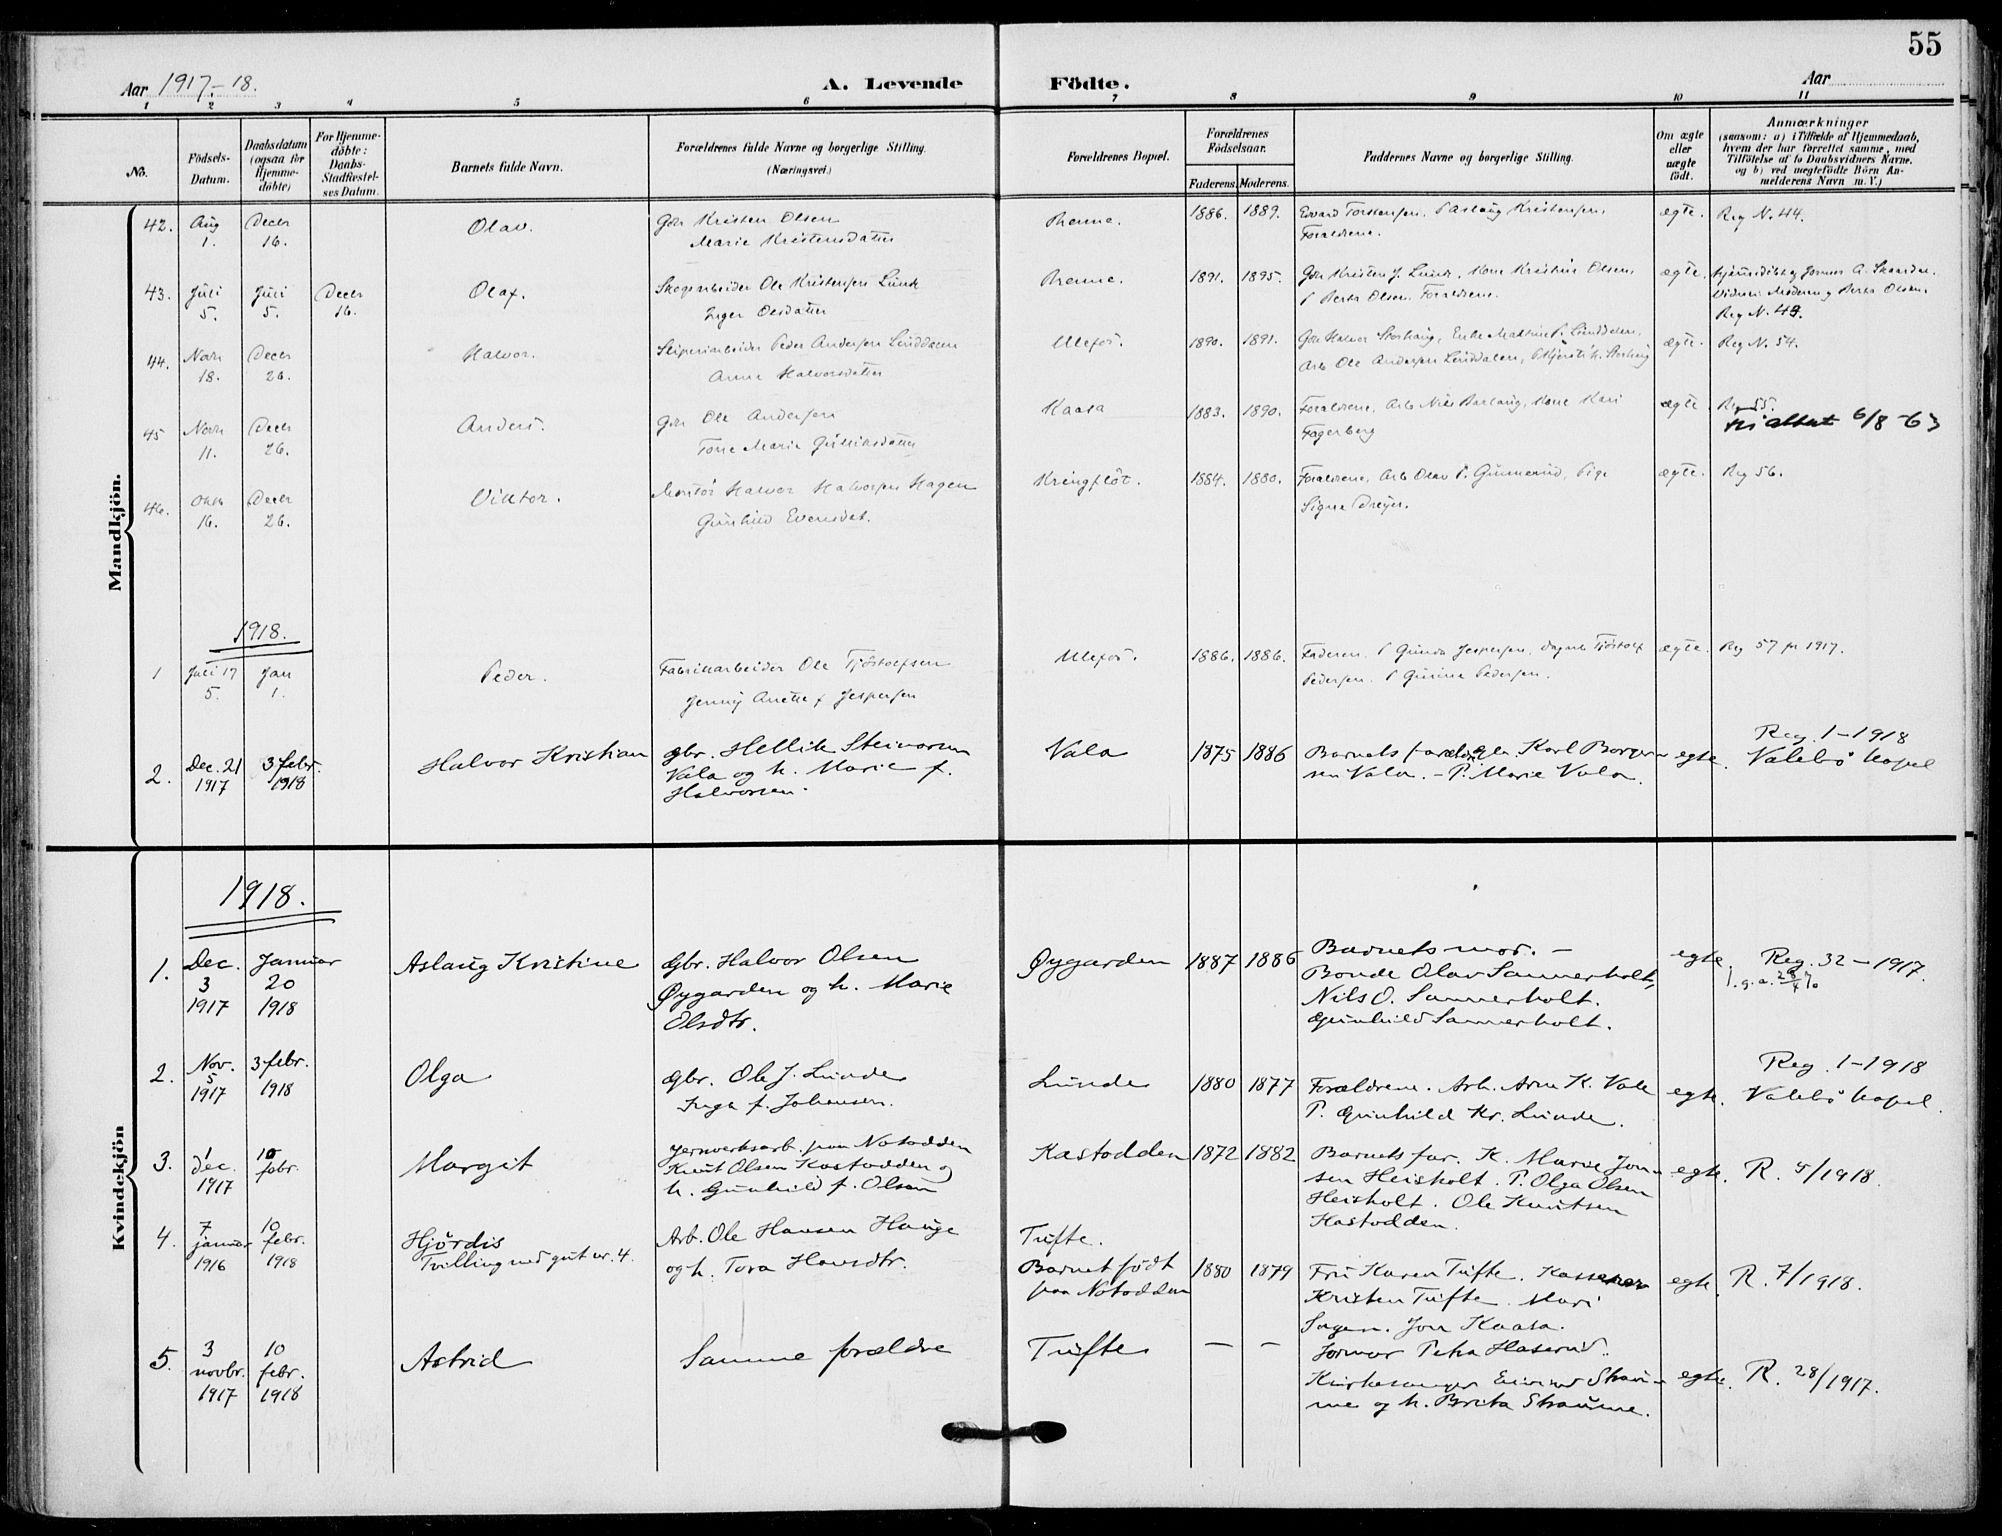 55
Aar 1917-18.
A. Levende Födte.
Aar
1 2 3 4 5 6 7 8 9 10 11
No.
Födsels-Datum.
Daabsdatum (ogsaa for Hjemme-döbte)
For Hjemme-döbte: Daabs-Stadfæstel-ses Datum.
Barnets fulde Navn.
Forældrenes fulde Navne og borgerlige Stilling.
(Næringsvei.)
Forældrenes Bopæl.
Forældrenes Födselsaar.
Faderens. Moderens.
Faddernes Navne og borgerlige Stilling.
Om ægte eller uægte födt.
Anmærkninger
(saasom: a) i Tilfælde af Hjemmedaab,
hvem der har forrettet samme, med
Tilföielse af to Daabsvidners Navne.
og b) ved uegtefödte Börn An-
melderens Navn m. V.)
Mandkjön.
42. Aug 1. Decbr 16. Olav.
Gbr Kristen Olsen
Marie Kristensdatter
1886. 1889.
Forældrene.
ægte. Reg N. 44.
43. Juli 5. Juli 5. Decbr 16. Olaf.
Skogsarbeider Ole Kristensen Lunde
Inger Olsdatter
1891. 1895.
Gbr Kristen J. Lunde, Kone Kristine Olsen,
P Berta Olsen. Forældrene.
ægte.
Vidner: Moderen og Berta Olsen.
Reg N. 49.
44. Novbr 18. Decbr 26. Halvor.
Sliperiarbeider Peder Andersen Linddalen
Anne Halvorsdatter
Ulefos. 1890. 1891.
Arb Ole Andersen Linddalen,
ægte. Reg N. 54.
45 Novbr 11. Decbr 26. Anders.
Gbr Ole Andersen
Tone Marie Gulliksdatter
Kaasa 1883. 1890.
Forældrene, Arb Nils Aaslaug, Kone Kari
Fagerberg
ægte. Reg 55.
6/8-63
46. Oktb 16. Decbr 26. Viktor.
Montör Halvor Halvorsen Hagen
Gunhild Evensdat.
Kringflöt. 1884. 1880.
Forældrene, Arb Olav P. Gunnerud, Pige
Signe Dreyer.
ægte. Reg 56.
1918.
1 Juli 17 5. Jan 1. Peder.
Fabrikarbeider Ole Tjöstolfsen
Jenny Anette f Jespersen
Ulefos. 1886. 1886.
Faderen. P Gunda Jespersen, Tjöstolf
Pedersen. P Gunine Pedersen.
ægte. Reg 57 pr 1917.
2. Dec. 21 1917 3 febr. 1918 Halvor Kristian
gbr. Hellik Steinarsen
Vala og h. Marie f.
Halvorsen.
Vala 1875 1886
Barnets forældre, gbr. Karl Borger-
sen Vala. - P. Marie Vala.
egte.
Reg. 1-1918
Valebö kapel
Kvindekjön
1918.
1. Dec. 3 1917 Januar 20 1918 Aslaug Kristine
Gbr. Halvor Olsen
Øygarden og h. Marie
Olsdtr.
Øygarden 1887 1886
Barnets mor. -
Bonde Olav Sannerholt,
Nils O. Sannerholt.
Gunhild Sannerholt.
egte. Reg. 32 - 1917.
2. Nov. 5 1917 3 febr. 1918 Olga
Gbr. Ole J. Lunde
Inga f. Johansen.
Lunde 1880 1877
Forældrene. Arb. Arne K. Vale
P. Gunhild Kr. Lunde.
egte.
Reg. 1-1918
Valebö kapel.
3. 1 dec. 1917 10 febr. Margit
Jernverksarb. paa Notodden
Knut Olsen Kastodden og
h. Gunhild f. Olsen
Kastodden 1872 1882
Barnets far. K. Marie Jon-
sen Heisholt. P. Olga Olsen
Heisholt. Ole Knutsen
Kastodden.
egte. R. 5/1918.
4. 7 januar 1916 10 febr. 1918 Hjördis
Tvilling med gut nr. 4.
Arb. Ole Hansen Hauge
og h. Tora Hansdtr.
Tufte.
Barnet födt
paa Notodden
1880 1879
Fru Karen Tufte. Kasserer
Kristen Tufte. Mari
Sagen. Jon Kaasa.
egte. R. 7/1918.
5. 3 novbr. 1917 10 febr. 1918 Astrid
Samme forældre
Tufte - -
Jormor Petra Haserud.
Kirkesanger Eivind Straum-
me og h. Brita Straumme.
egte. R. 28/1917.